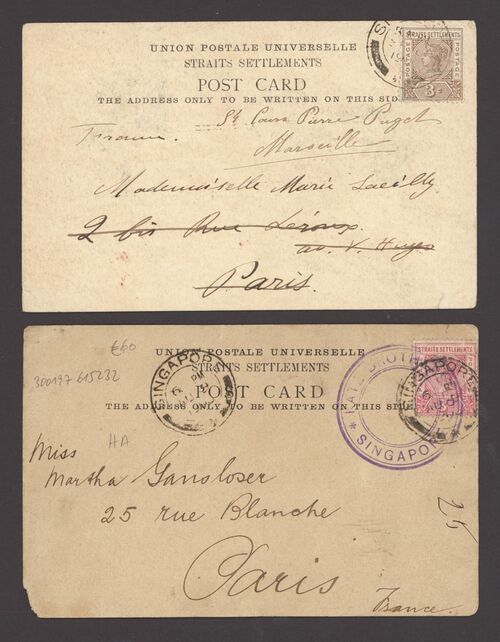 UNION POSTALE UNIVERSELLE
STRAITS SETTLEMENTS
POST CARD
THE ADDRESS ONLY TO BE WRITTEN ON THIS SID
STRAITS SETTLEMENTS
POSTAGE
POSTAGE
3
Cours Pierre Puget
Marseille
Mademoiselle Marie
2 bis Rue
av. V. Hugo
Paris.
€60
300197 615232
HA
UNION POSTALE UNIVERSELLE
STRAITS SETTLEMENTS
POST CARD
THE ADDRESS ONLY TO BE WRITTEN ON THIS SID
SINGAPOR
PM
STRAITS SETTLEMENTS
SINGAPORE
BROTH
* SINGAPO
Miss
Martha Gansloser
25 rue Blanche
Paris
France
25